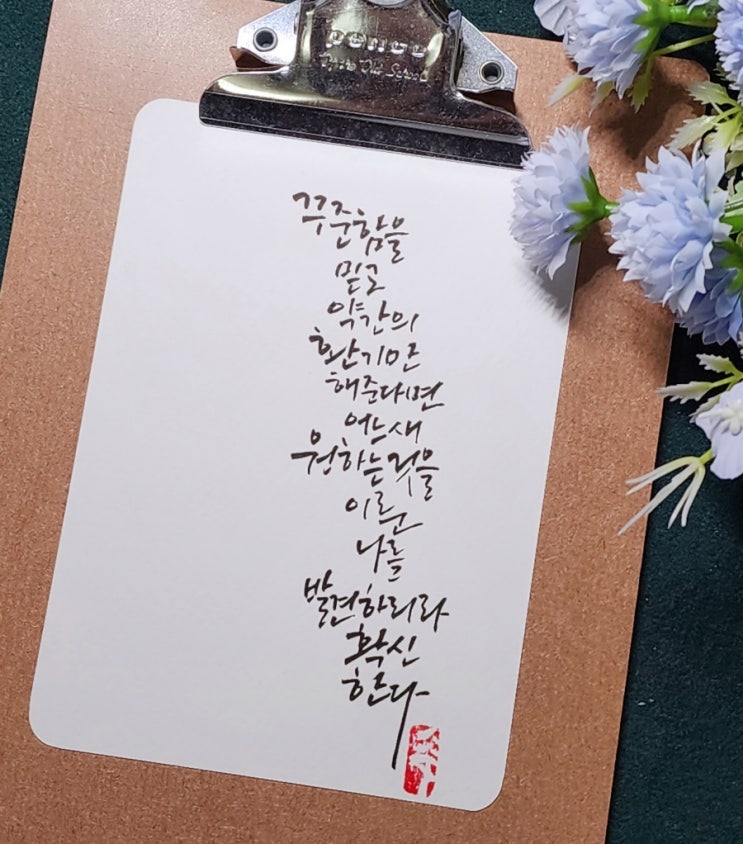 penco
꾸준함을
믿고
약간의
환기만
해준다면
어느새
원하는것을
이룬
나를
발견하리라
확신
한다